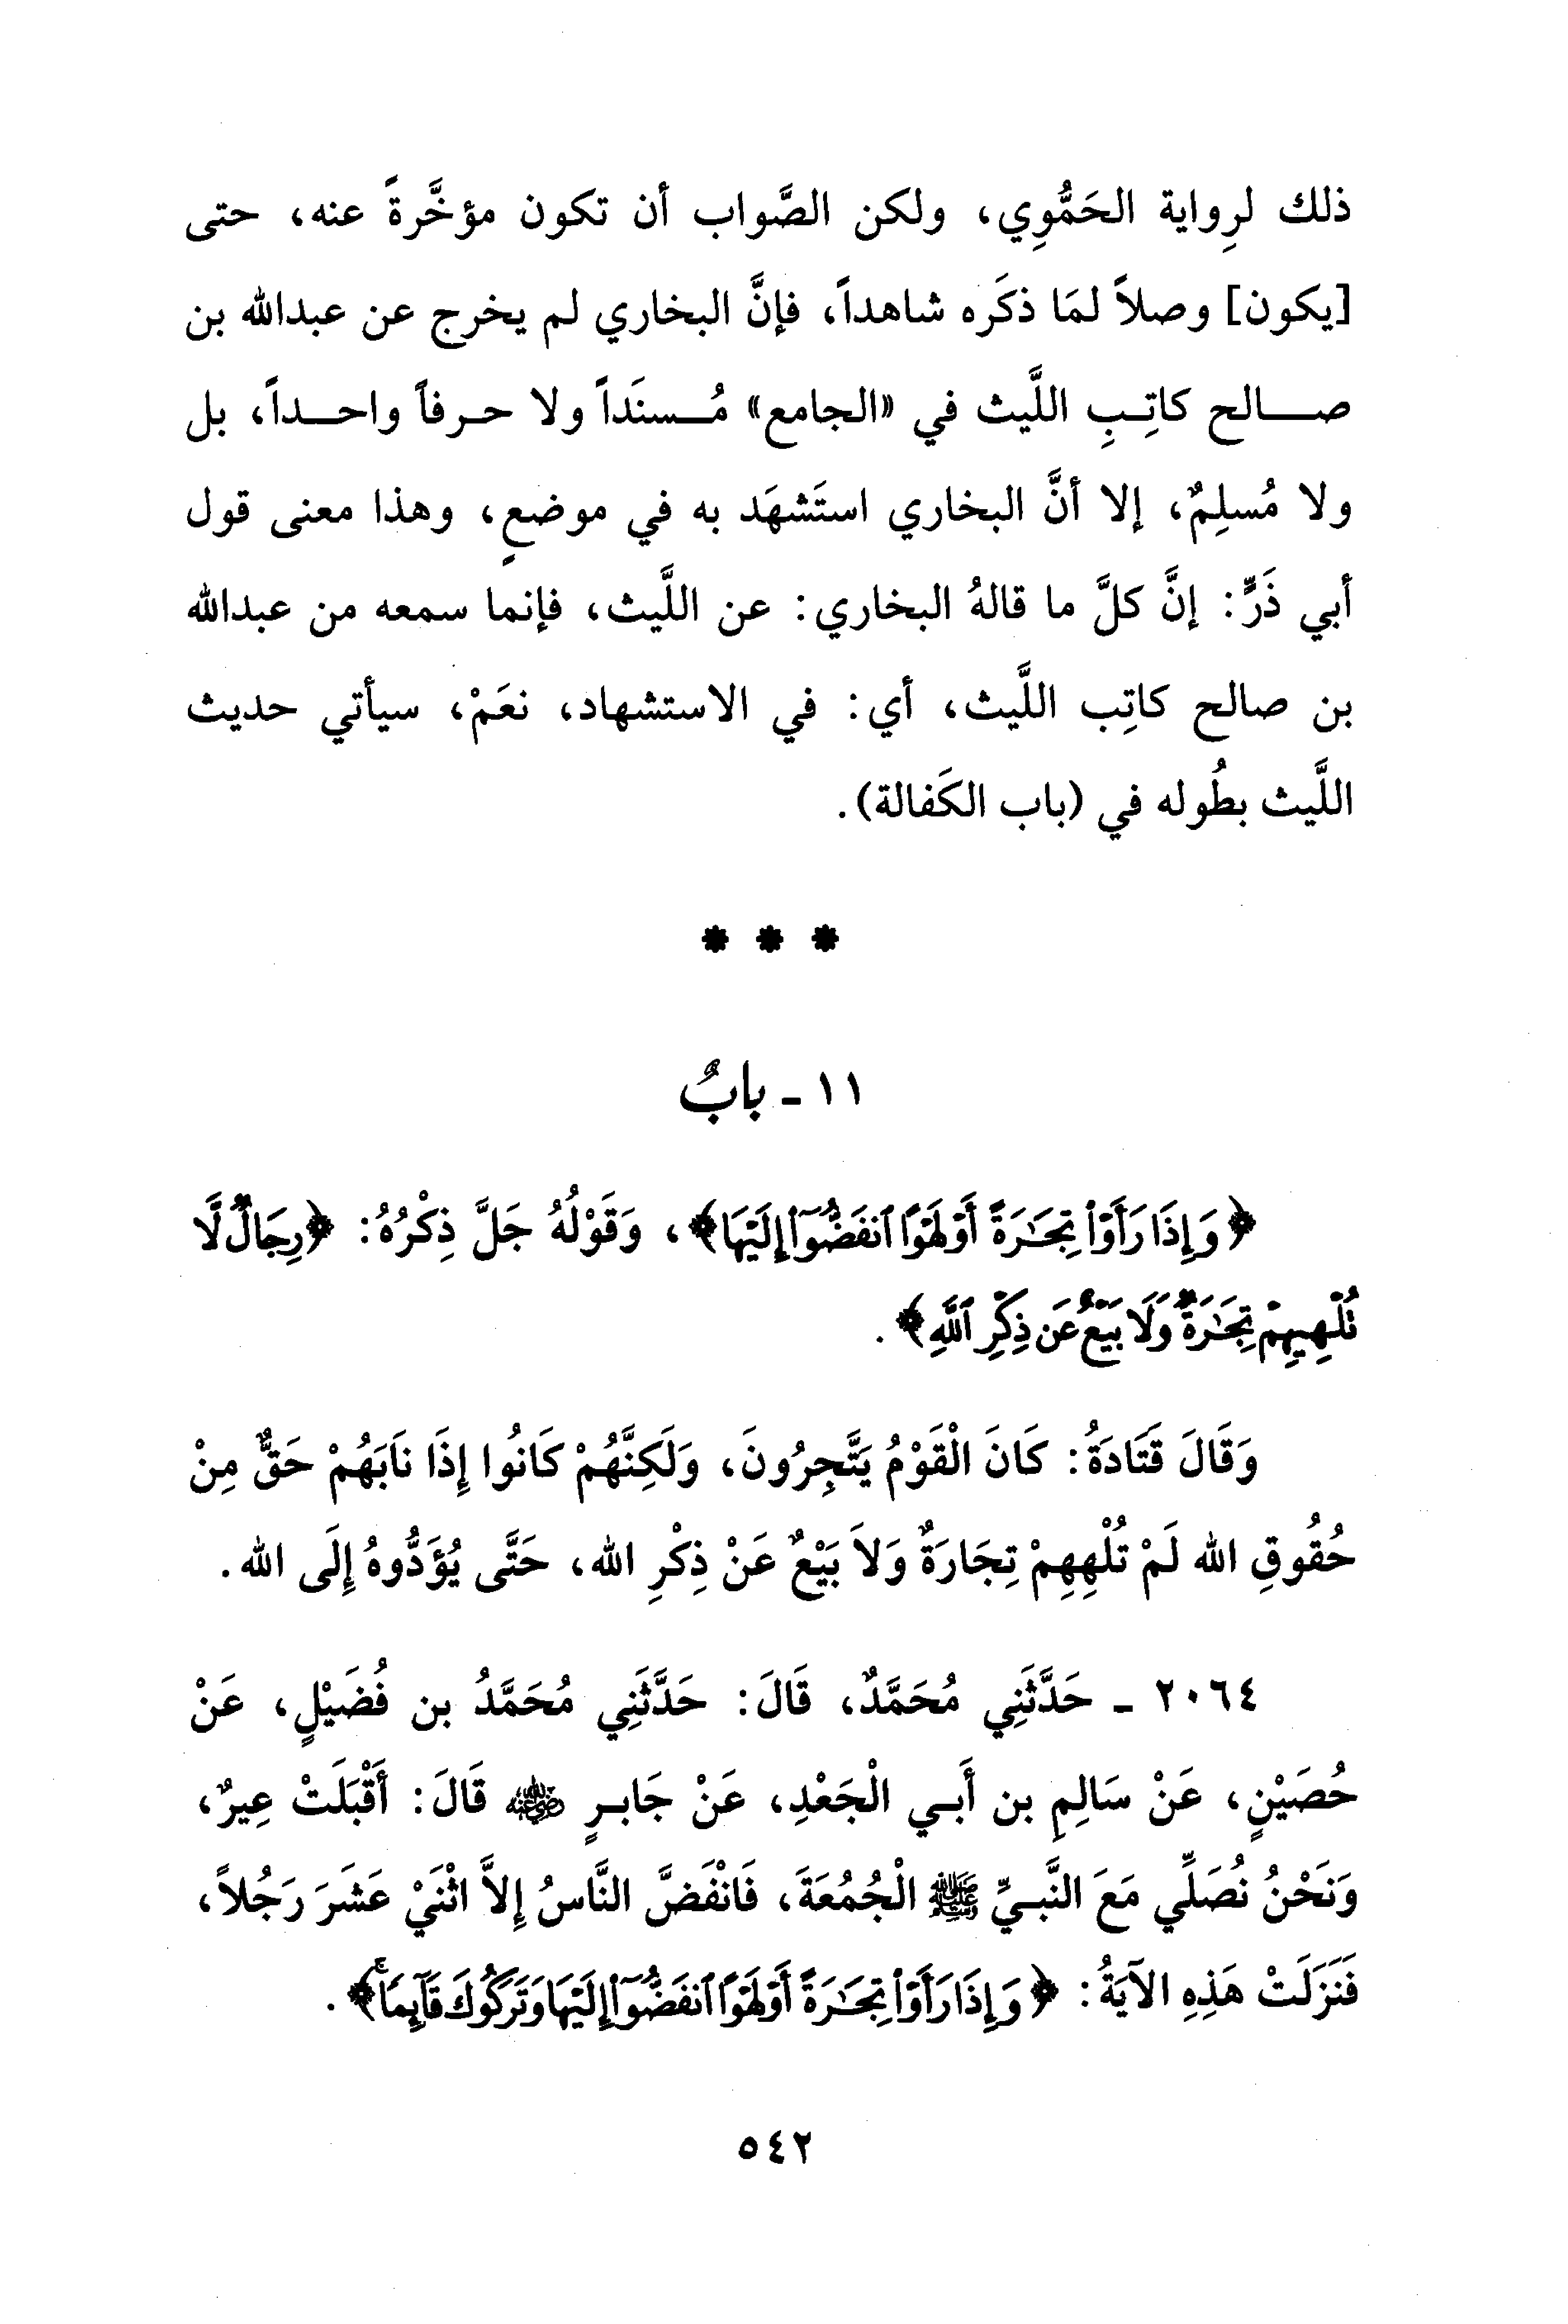 ذلك لرِواية الحَمُّوِي، ولكن الصَّواب أن تكون مؤخَّرةً عنه، حتى
[يكون] وصلاً لمَا ذكَره شاهداً، فإنَّ البخاري لم يخرج عن عبدالله بن
صـالح كاتِـبِ اللَّيث في «الجامع» مُـسنَداً ولا حـرفاً واحـداً، بل
ولا مُسلِمٌ، إلا أنَّ البخاري استَشهَد به في موضعٍ، وهذا معنى قول
أبي ذَرٍّ: إنَّ كلَّ ما قالهُ البخاري: عن اللَّيث، فإنما سمعه من عبدالله
بن صالح كاتِب اللَّيث، أي: في الاستشهاد، نعَمْ، سيأتي حديث
اللَّيث بطُوله في (باب الكَفالة).
* * *
١١ - بابٌ
﴿وَإِذَا رَأَوْا۟ تِجَـٰرَةً أَوْ لَهْوًا ٱنفَضُّوٓا۟ إِلَيْهَا﴾، وَقَوْلُهُ جَلَّ ذِكْرُهُ: ﴿رِجَالٌ لَّا
تُلْهِيهِمْ تِجَـٰرَةٌ وَلَا بَيْعٌ عَن ذِكْرِ ٱللَّهِ﴾.
وَقَالَ قَتَادَةُ: كَانَ الْقَوْمُ يَتَّجِرُونَ، وَلَكِنَّهُمْ كَانُوا إِذَا نَابَهُمْ حَقٌّ مِنْ
حُقُوقِ الله لَمْ تُلْهِهِمْ تِجَارَةٌ وَلاَ بَيْعٌ عَنْ ذِكْرِ الله، حَتَّى يُؤَدُّوهُ إِلَى الله.
٢٠٦٤ - حَدَّثَنِي مُحَمَّدٌ، قَالَ: حَدَّثَنِي مُحَمَّدُ بن فُضَيْلٍ، عَنْ
حُصَيْنٍ، عَنْ سَالِمِ بن أَبـي الْجَعْدِ، عَنْ جَابـرٍ رضي الله عنه قَالَ: أَقْبَلَتْ عِيرٌ،
وَنَحْنُ نُصَلِّي مَعَ النَّبـيِّ ﷺ الْجُمُعَةَ، فَانْفَضَّ النَّاسُ إِلاَّ اثْنَيْ عَشَرَ رَجُلاً،
فَنَزَلَتْ هَذِهِ الآيَةُ: ﴿وَإِذَا رَأَوْا۟ تِجَـٰرَةً أَوْ لَهْوًا ٱنفَضُّوٓا۟ إِلَيْهَا وَتَرَكُوكَ قَآئِمًا ۚ﴾.
٥٤٢